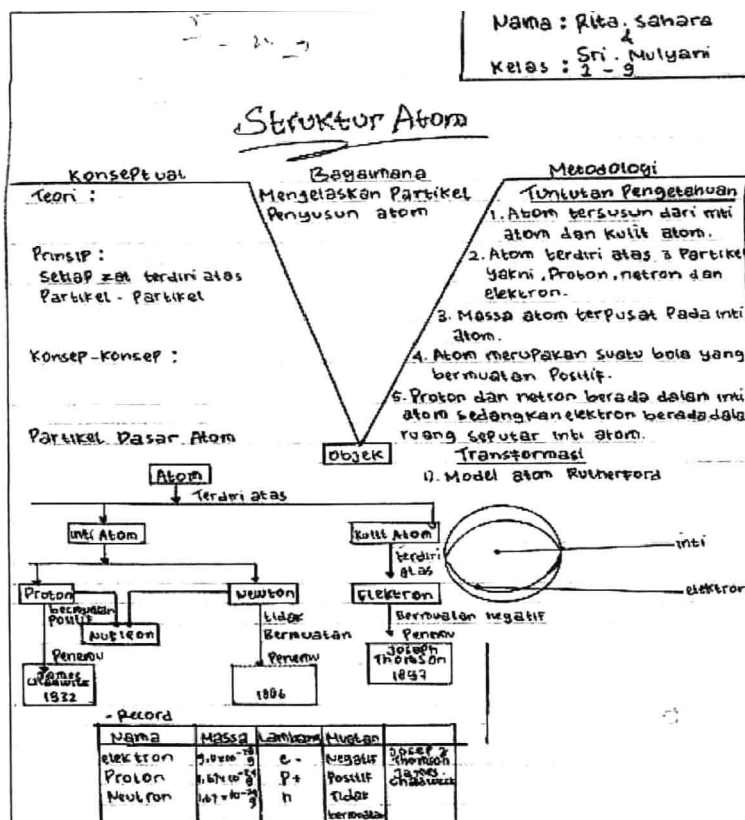 Nama : Rita. Sahara
&
Sri. Mulyani
Kelas : 2 - 9
Struktur Atom
Konseptual
Teori :
Prinsip :
Setiap zat terdiri atas
Partikel - Partikel
Konsep-Konsep :
Partikel Dasar Atom
Bagaimana
Mengelaskan Partikel
Penyusun atom
Objek
Metodologi
Tuntutan Pengetahuan
1. Atom tersusun dari inti
atom dan kulit atom.
2. Atom terdiri atas 3 Partikel
yakni, Proton, netron dan
elektron.
3. Massa atom terpusat Pada inti
atom.
4. Atom merupakan suatu bola yang
bermuatan Positif.
5. Proton dan netron berada dalam inti
atom sedangkan elektron berada dala
ruang seputar inti atom.
Transformasi
1). Model atom Rutherford
inti
elektron
Atom
Terdiri atas
inti Atom
Kulit Atom
terdiri
atas
Proton
Newton
Elektron
bermuatan
Positif
Nukleon
tidak
Bermuatan
Bermuatan negatif
Penemu
Penemu
Penemu
James
1932
1886
Joseph
Thomson
1897
- Record
Nama Massa Lambang Muatan
elektron e- Negatif Josep J Thomson
Proton P+ Positif James. Chadwick
Neutron n Tidak
bermuatan